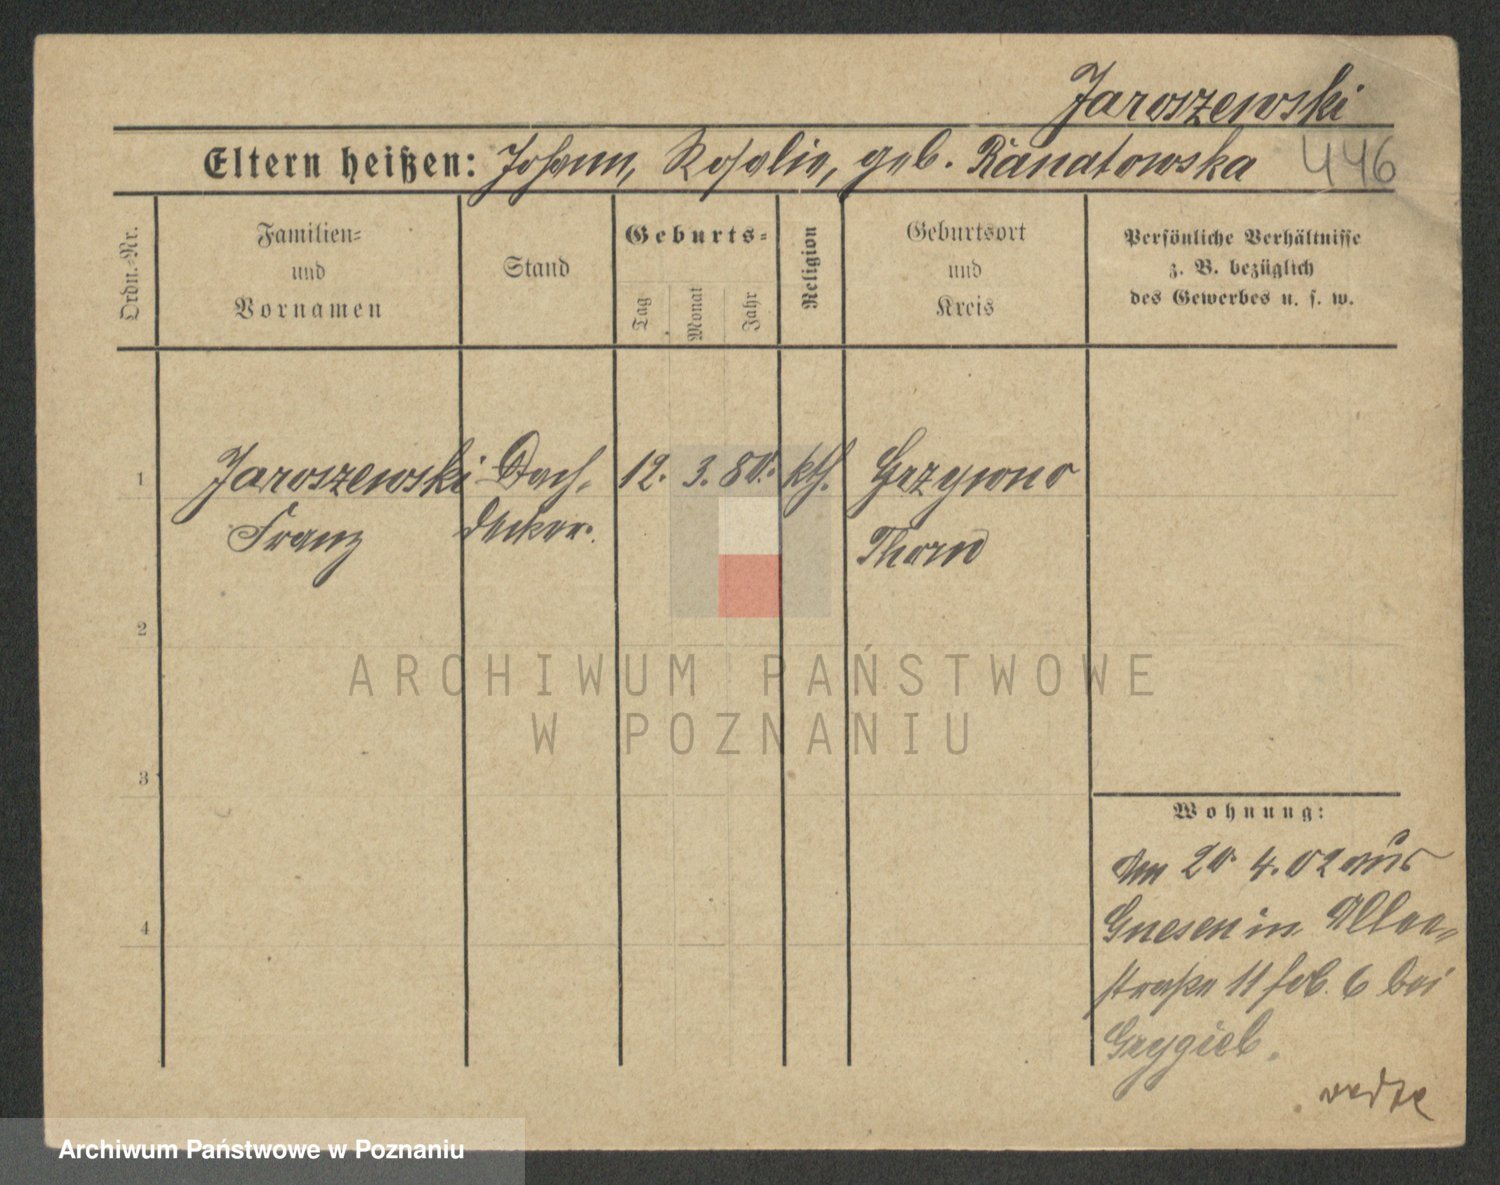 Jaroszewski
Eltern heißen: Johann, Rosalie, geb. Ranatowska 446
Ordn.-Nr.
Familien-
und
Vornamen
Stand
Geburts-
Tag
Monat
Jahr
Religion
Geburtsort
und
Kreis
Persönliche Verhältnisse
z. B. bezüglich
des Gewerbes u. s. w.
1 Jaroszewski Dach- 12. 3. 80. kth. Grzywno
Franz decker. Thorn
2
3
4
Wohnung:
Am 20. 4. 02 aus
Gnesen in Allee-
straße 11 fob. 6 bei
Grygiel.
ARCHIWUM PAŃSTWOWE
W POZNANIU
Archiwum Państwowe w Poznaniu